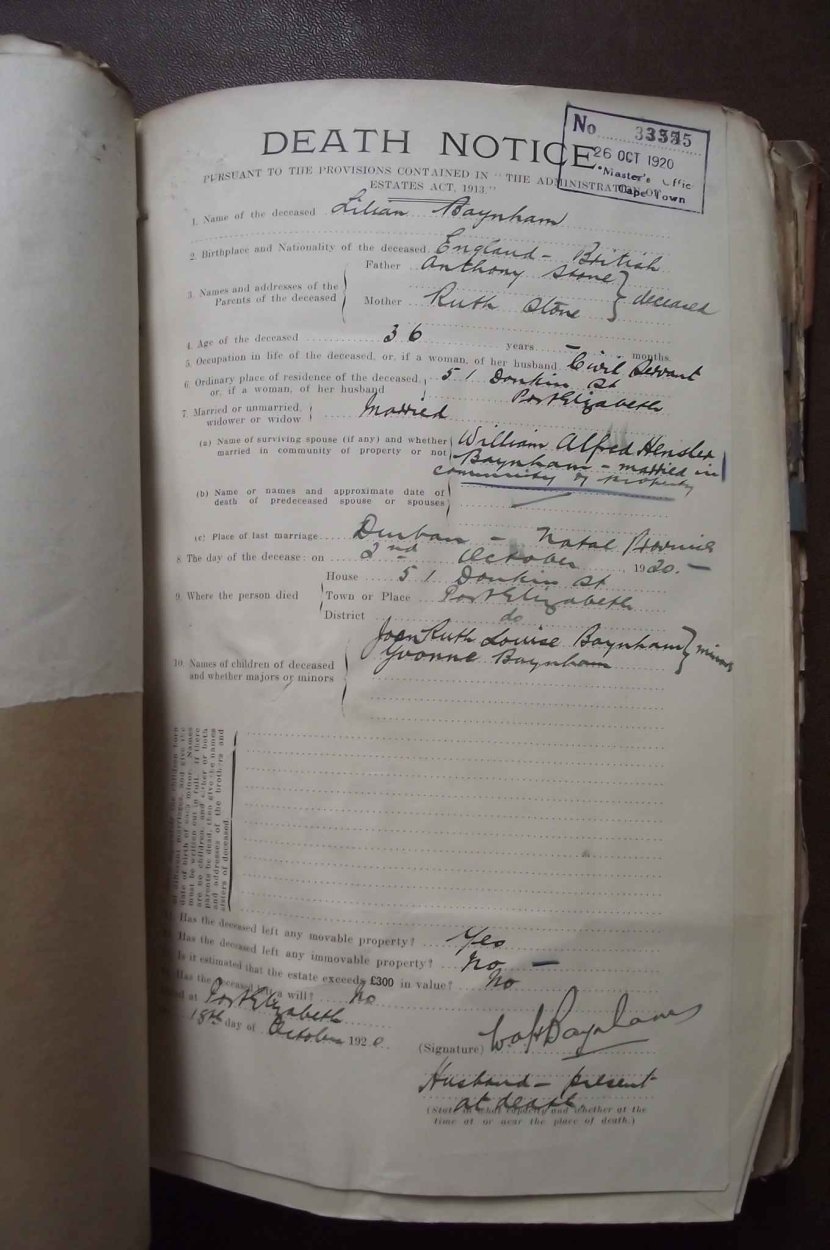 DEATH NOTICE
No 33375
26 OCT 1920
Master's Office
Cape Town
PURSUANT TO THE PROVISIONS CONTAINED IN "THE ADMINISTRATION OF
ESTATES ACT, 1913."
1. Name of the deceased Lilian Baynham
2. Birthplace and Nationality of the deceased England - British
3. Names and addresses of the Parents of the deceased
Father Anthony Stone
Mother Ruth Stone
} deceased
4. Age of the deceased 36 years - months.
5. Occupation in life of the deceased, or, if a woman, of her husband Civil Servant
6. Ordinary place of residence of the deceased, or, if a woman, of her husband
51 Donkin St
Port Elizabeth
7. Married or unmarried, widower or widow Married
(a) Name of surviving spouse (if any) and whether married in community of property or not
William Alfred Hensler
Baynham - married in
community of property
(b) Name or names and approximate date of death of predeceased spouse or spouses
(c) Place of last marriage Durban - Natal Province
8 The day of the decease: on 2nd October 1920. -
9. Where the person died
House 51 Donkin St
Town or Place Port Elizabeth
District do
10. Names of children of deceased and whether majors or minors
Joan Ruth Louise Baynham
Yvonne Baynham
} minors
date of birth of each minor. Names
must be written out in full. If there
are no children, and either or both
parents be dead, then give the names
and addresses of the brothers and
sisters of deceased
Has the deceased left any movable property? Yes
Has the deceased left any immovable property? No -
Is it estimated that the estate exceeds £300 in value? No
Has the deceased left a will? No
Dated at Port Elizabeth
18th day of October 1920.
(Signature) WAH Baynham
Husband - present
at death.
(State in what capacity and whether at the
time at or near the place of death.)